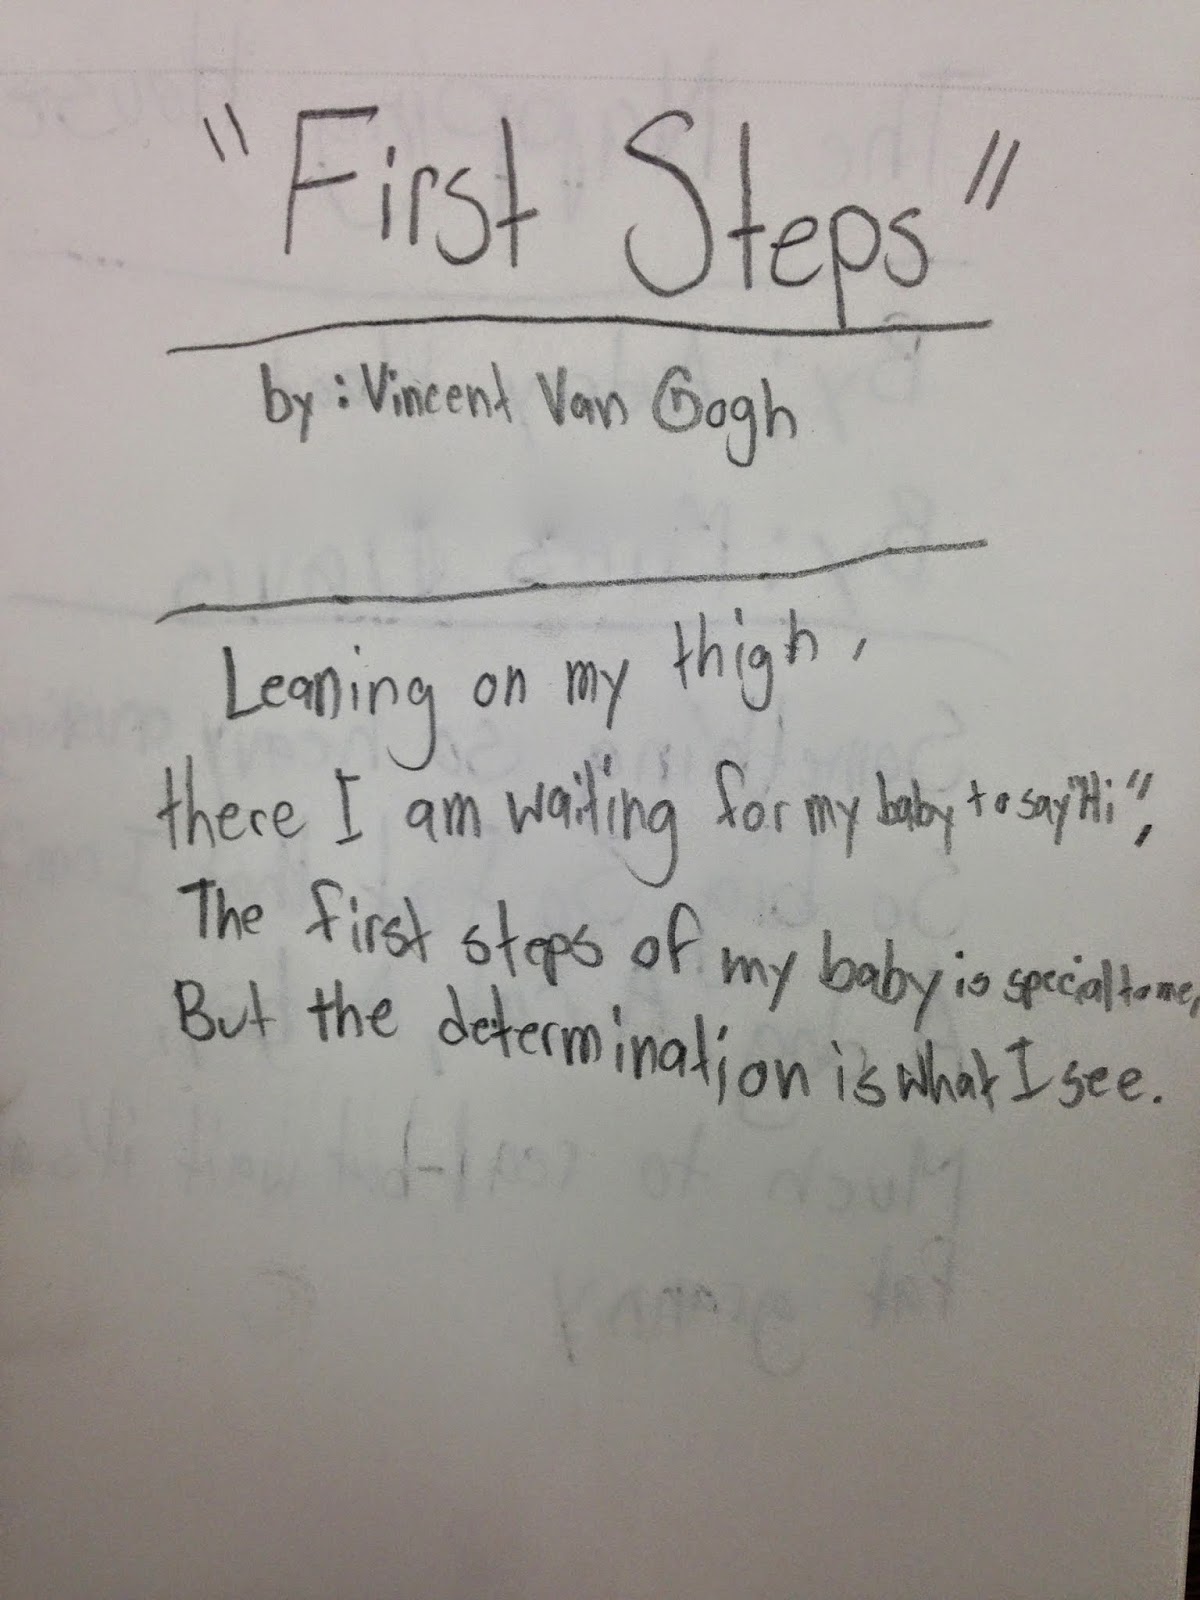 "First Steps"
by: Vincent Van Gogh
Leaning on my thigh,
there I am waiting for my baby to say "Hi",
The first steps of my baby is special to me,
But the determination is what I see.